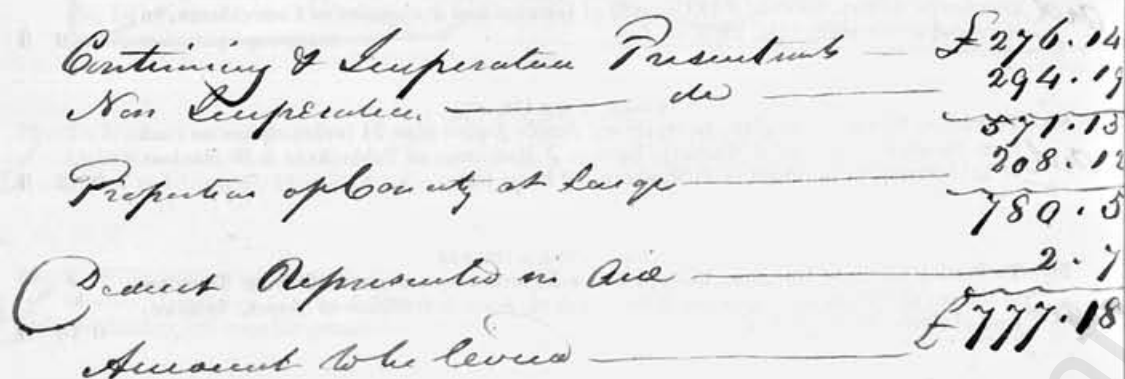 Continuing & Imperative Presentments — £276.14
Non Imperative — do — 294.19
571.13
Proportion of County at Large — 208.12
780.5
Deduct Represented in Aid — 2.7
£777.18
Amount to be levied —